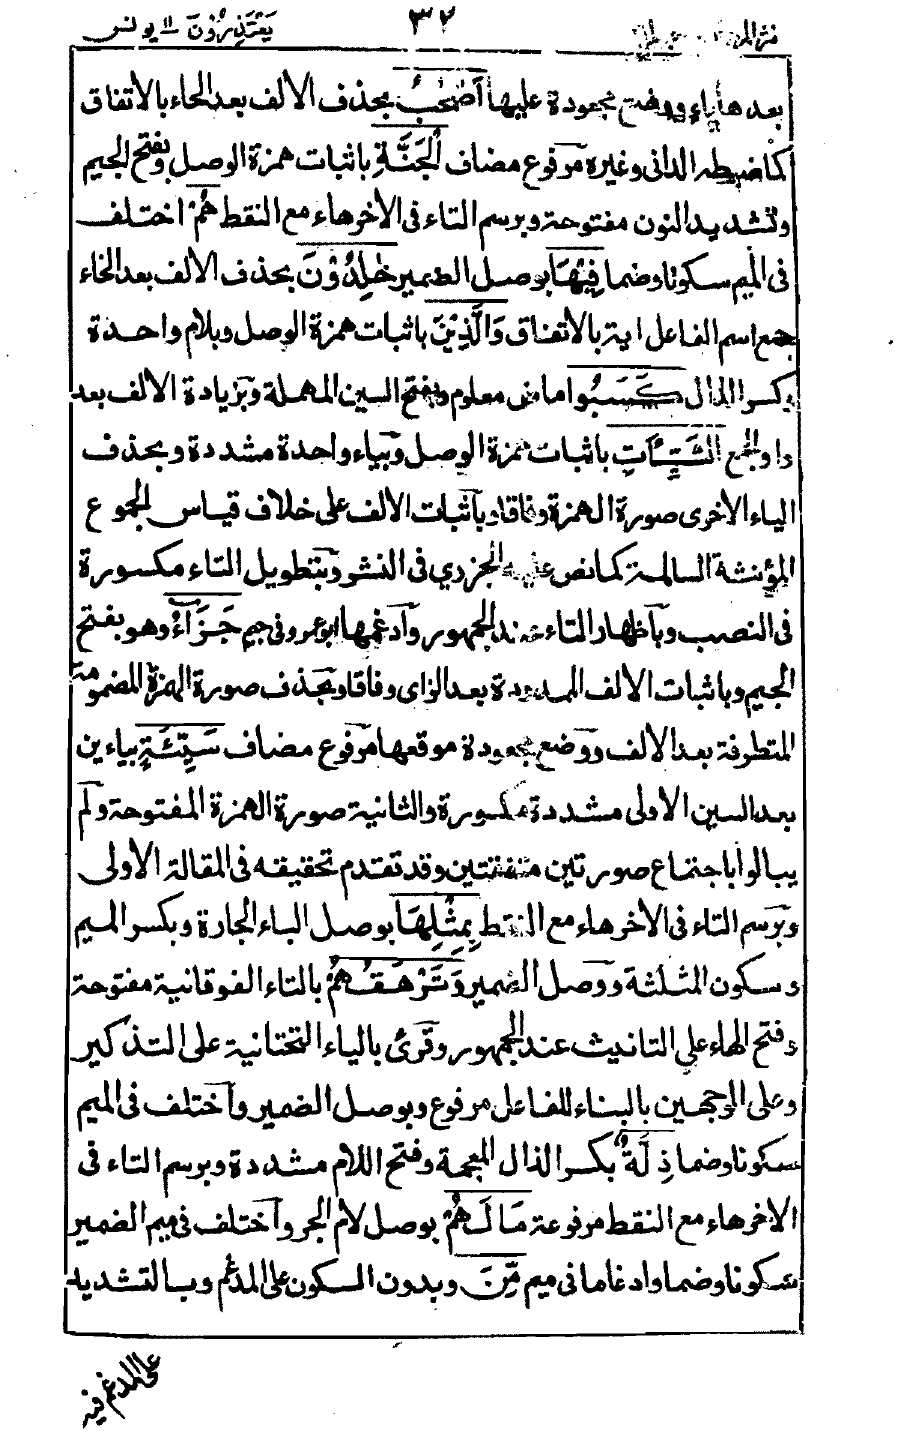 يَعْتَذِرُوْنَ ١١ يونس
٣٢
بعدها ياء ووضع مجعودة عليها اَصْحٰبُ بحذف الالف بعد الحاء بالاتفاق
كما ضبطه الدانى وغيره مرفوع مضاف الْجَنَّةِ باثبات همزة الوصل وبفتح الجيم
وتشديد النون مفتوحة وبرسم التاء فى الاخر هاء مع النقط هُمْ اختلف
فى الميم سكونا وضما فِيْهَا بوصل الضمير خٰلِدُوْنَ بحذف الالف بعد الخاء
جمع اسم الفاعل اية بالاتفاق وَالَّذِيْنَ باثبات همزة الوصل وبلام واحدة
وبكسر الذال كَسَبُوا ماض معلوم وبفتح السين المهملة وبزيادة الالف بعد
واو الجمع السَّيِّئٰاتِ باثبات همزة الوصل وبياء واحدة مشددة وبحذف
الياء الاخرى صورة الهمزة وفاقا وباثبات الالف على خلاف قياس الجموع
المؤنثة السالمة كما نص عليه الجزرى فى النشر وبتطويل التاء مكسورة
فى النصب وباظهار التاء عند الجمهور وادغمها ابو عمرو فى جيم جَزَاءُ وهو بفتح
الجيم وباثبات الالف الممدودة بعد الزاى وفاقا وبحذف صورة الهمزة المضمومة
المتطرفة بعد الالف ووضع مجعودة موقعها مرفوع مضاف سَيِّئَةٍ بياءين
بعد السين الاولى مشددة مكسورة والثانية صورة الهمزة المفتوحة ولم
يبالوا باجتماع صورتين متفقتين وقد تقدم تحقيقه فى المقالة الاولى
وبرسم التاء فى الاخر هاء مع النقط بِمِثْلِهَا بوصل الباء الجارة وبكسر الميم
وسكون المثلثة ووصل الضمير وَتَرْهَقُهُمْ بالتاء الفوقانية مفتوحة
وفتح الهاء على التانيث عند الجمهور وقرئ بالياء التحتانية على التذكير
وعلى الوجهين بالبناء للفاعل مرفوع وبوصل الضمير واختلف فى الميم
سكونا وضما ذِلَّةٌ بكسر الذال المعجمة وفتح اللام مشددة وبرسم التاء فى
الاخر هاء مع النقط مرفوعة مَا لَهُمْ بوصل لام الجر واختلف فى ميم الضمير
سكونا وضما وادغاما فى ميم مِّنَ وبدون السكون على المدغم وبالتشديد
على المدغم فيه